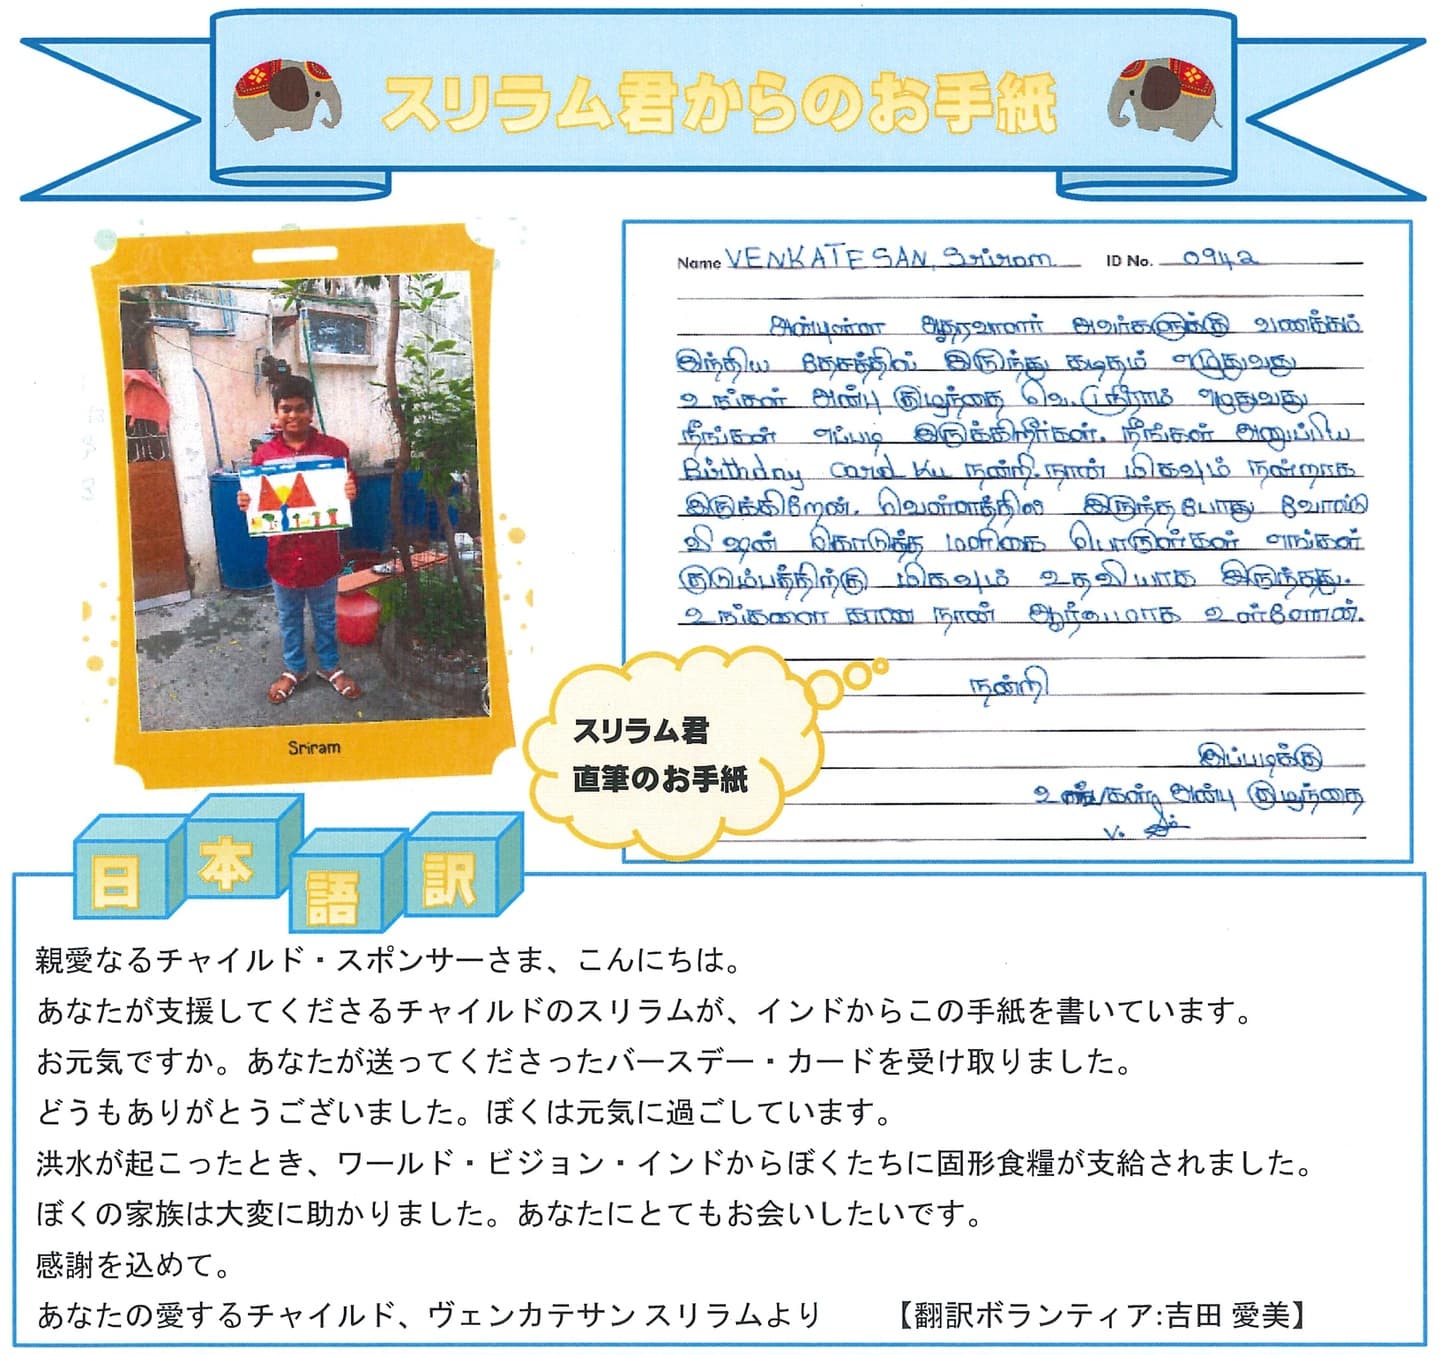 スリラム君からのお手紙
Name VENKATESAN, Sriram ID No. 0942
அன்புள்ள ஆதரவாளர் அவர்களுக்கு வணக்கம்
இந்திய தேசத்தில் இருந்து கடிதம் எழுதுவது
உங்கள் அன்பு குழந்தை வெ. ஸ்ரீராம் எழுதுவது
நீங்கள் எப்படி இருக்கிறீர்கள். நீங்கள் அனுப்பிய
Birthday Card க்கு நன்றி. நான் மிகவும் நன்றாக
இருக்கிறேன். வெள்ளத்தில் இருந்த போது வேர்ல்டு
விஷன் கொடுத்த மளிகை பொருள்கள் எங்கள்
குடும்பத்திற்கு மிகவும் உதவியாக இருந்தது.
உங்களை காண நான் ஆர்வமாக உள்ளேன்.
நன்றி
இப்படிக்கு
அன்பு குழந்தை
V.
Sriram
スリラム君
直筆のお手紙
日本語訳
親愛なるチャイルド・スポンサーさま、こんにちは。
あなたが支援してくださるチャイルドのスリラムが、インドからこの手紙を書いています。
お元気ですか。あなたが送ってくださったバースデー・カードを受け取りました。
どうもありがとうございました。ぼくは元気に過ごしています。
洪水が起こったとき、ワールド・ビジョン・インドからぼくたちに固形食糧が支給されました。
ぼくの家族は大変に助かりました。あなたにとてもお会いしたいです。
感謝を込めて。
あなたの愛するチャイルド、ヴェンカテサン スリラムより 【翻訳ボランティア:吉田 愛美】